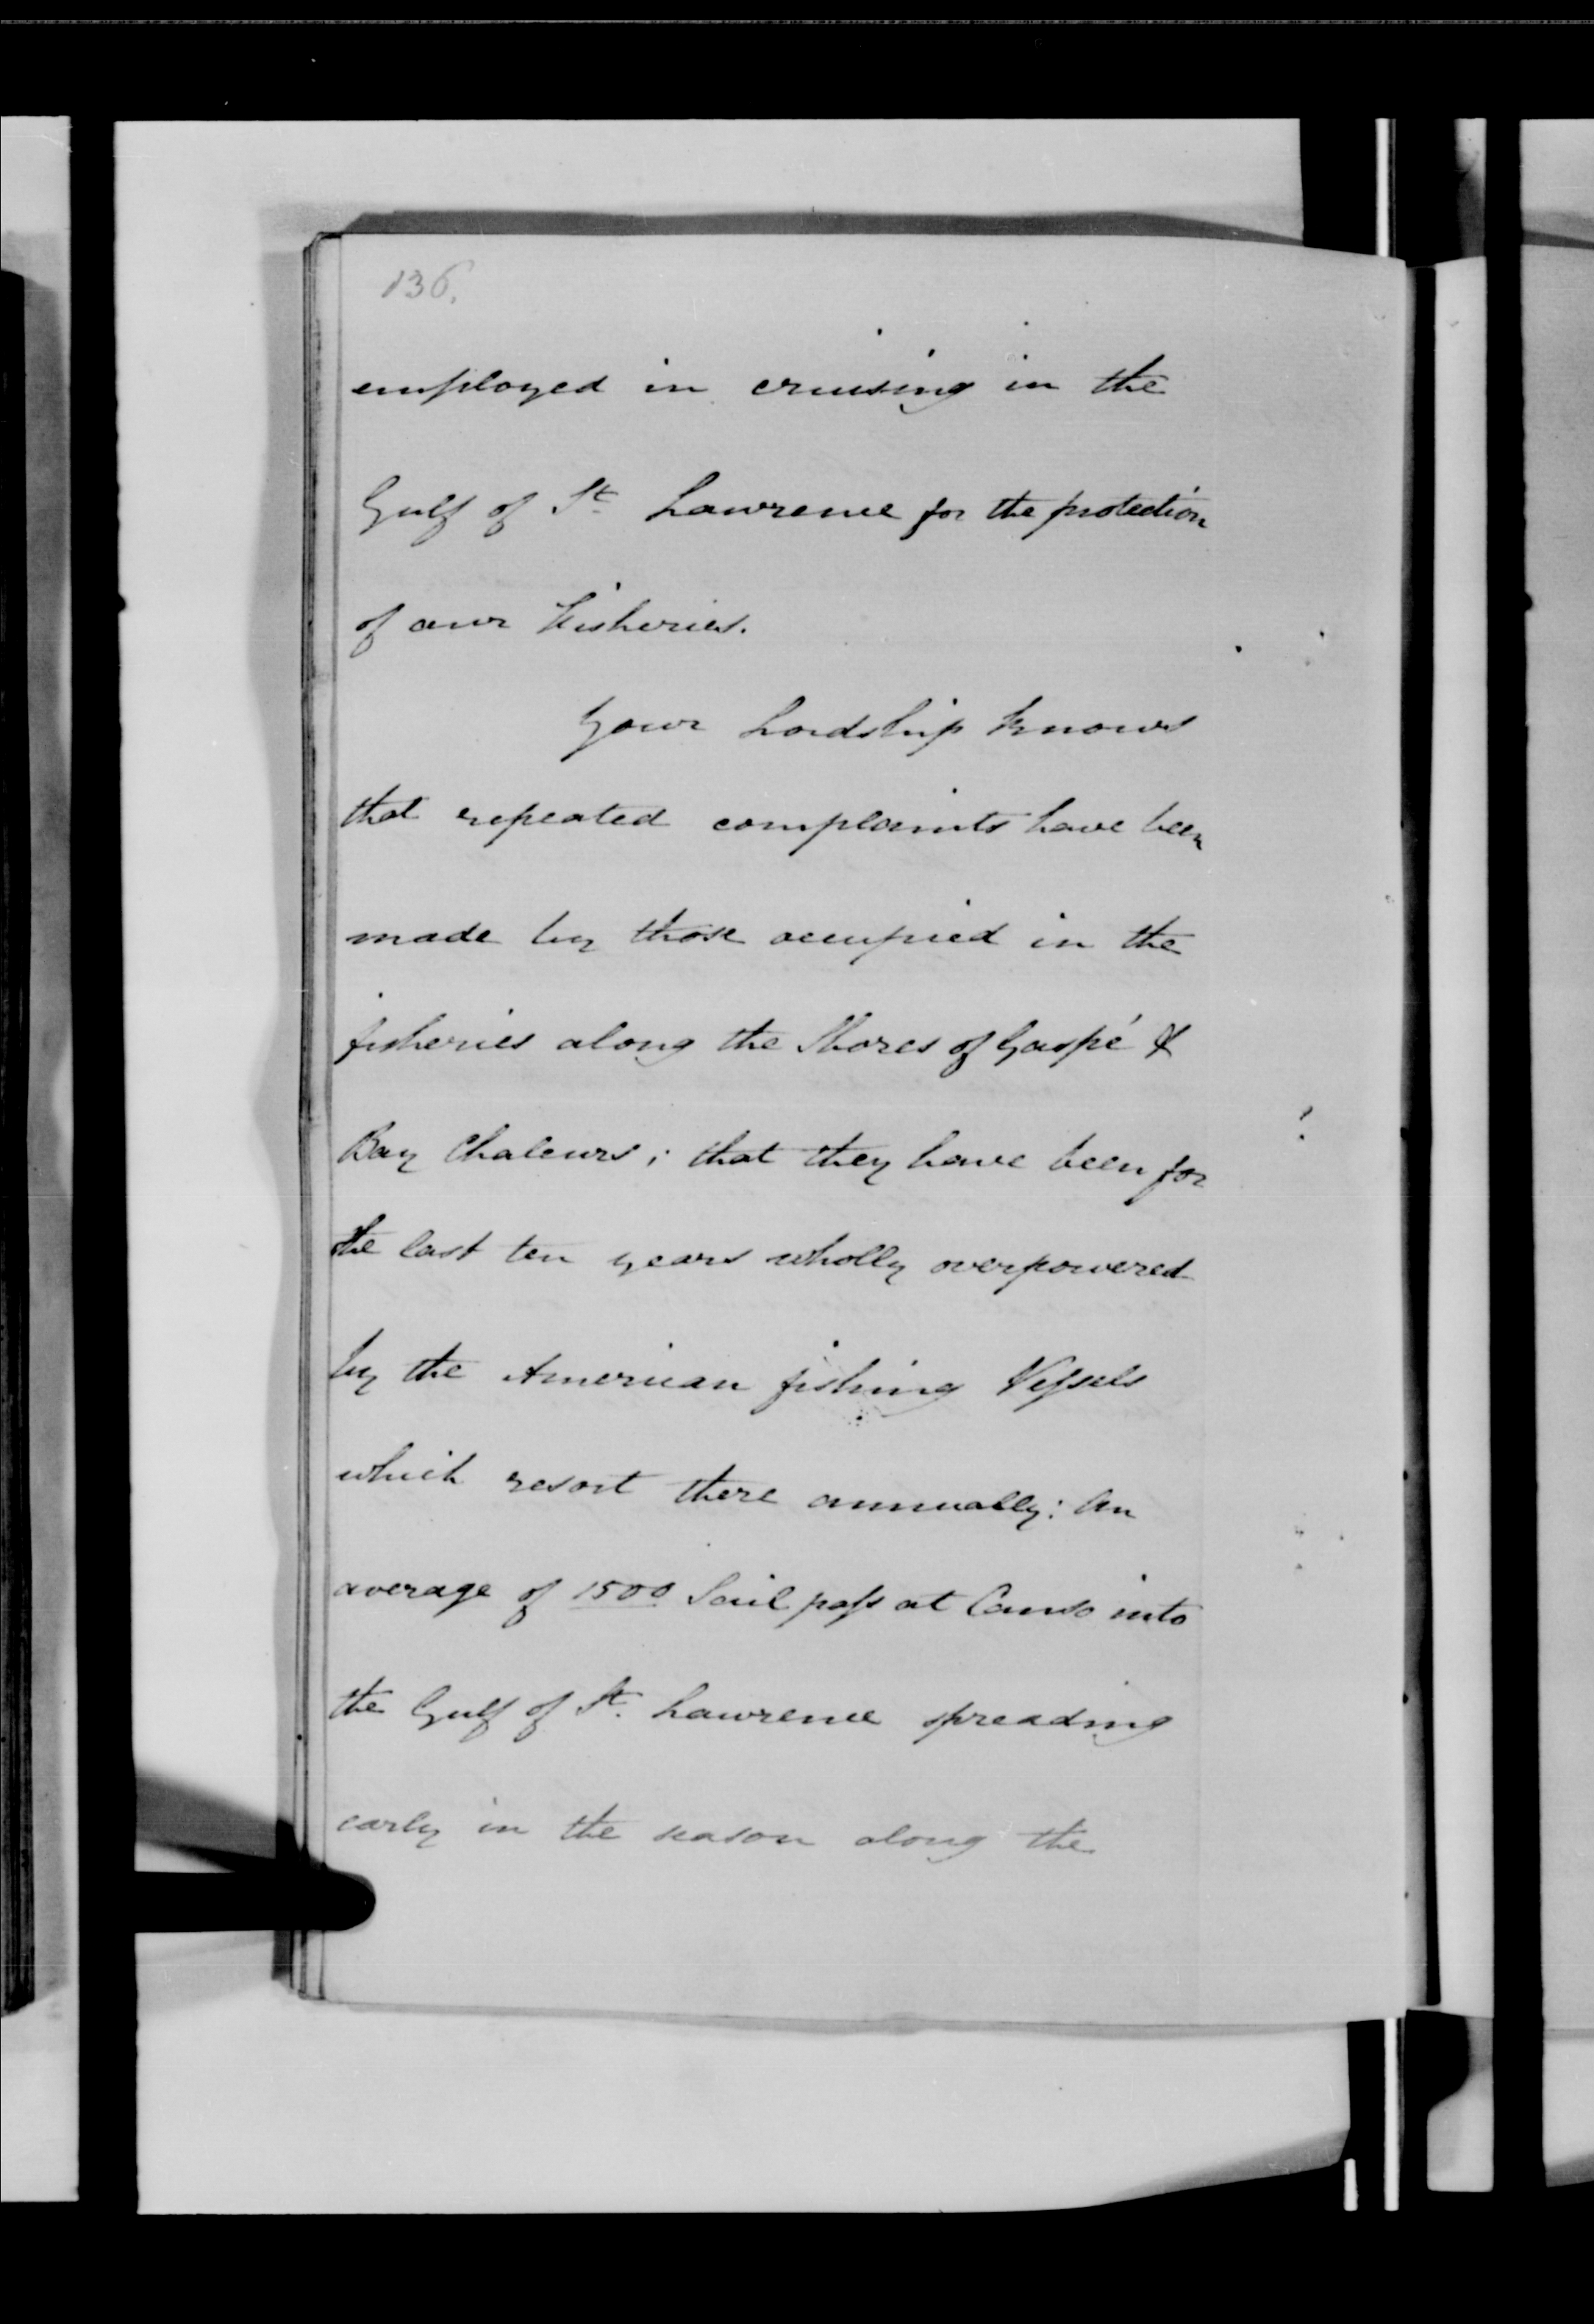 136.
employed in cruising in the
Gulf of St. Lawrence for the protection
of our Fisheries.
Your Lordship knows
that repeated complaints have been
made by those occupied in the
fisheries along the Shores of Gaspé &
Bay Chaleurs; that they have been for
the last ten years wholly overpowered
by the American fishing Vessels
which resort there annually: An
average of 1500 Sail pass at Canso into
the Gulf of St. Lawrence spreading
early in the season along the